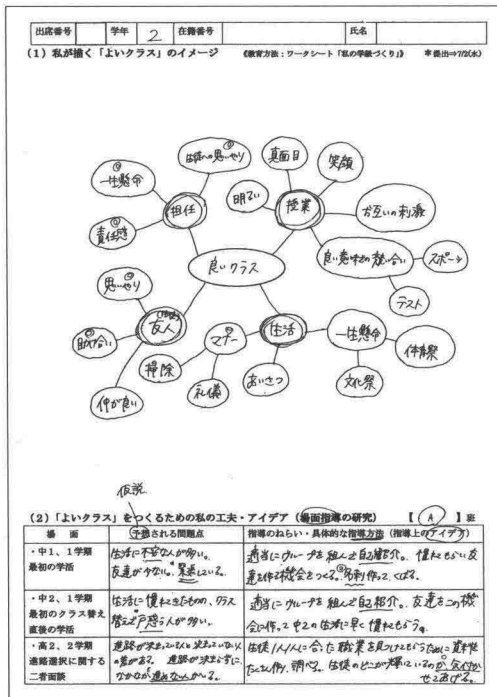 出席番号 学年 2 在籍番号 氏名
(1)私が描く「よいクラス」のイメージ 《教育方法:ワークシート「私の学級づくり」》 *提出⇒7/2(水)
生徒への思いやり
一生懸命
担任
責任感
真面目
笑顔
明るい
授業
お互いの刺激
良い意味での競い合い
スポーツ
テスト
良いクラス
思いやり
友人
助け合い
仲が良い
マナー
掃除
礼儀
生活
あいさつ
一生懸命
体育祭
文化祭
仮説
(2)「よいクラス」をつくるための私の工夫・アイデア(場面指導の研究) 【 A 】班
場 面 予想される問題点 指導のねらい・具体的な指導方法(指導上のアイデア)
・中1、1学期 最初の学活
生活に不安な人が多い。
友達が少ない。緊張している。
適当にグループを組んで自己紹介。慣れてもらい友
達を作る機会をつくる。 作って、くばる。
・中2、1学期 最初のクラス替え 直後の学活
生活に慣れてきたものの、クラス
替えで戸惑う人が多い。
適当にグループを組んで自己紹介。友達をこの機
会に作って中2の生活に早く慣れてもらう。
・高2、2学期 進路選択に関する 二者面談
進路が決まっている人、決まっていない人
の差がある。進路が決まらずに、
なかなか進めない人がいる。
生徒1人1人に合った職業を見つけてもらうために資料を
たくさん作り、調べる。生徒のどこが輝いているのか気付か
せてあげる。